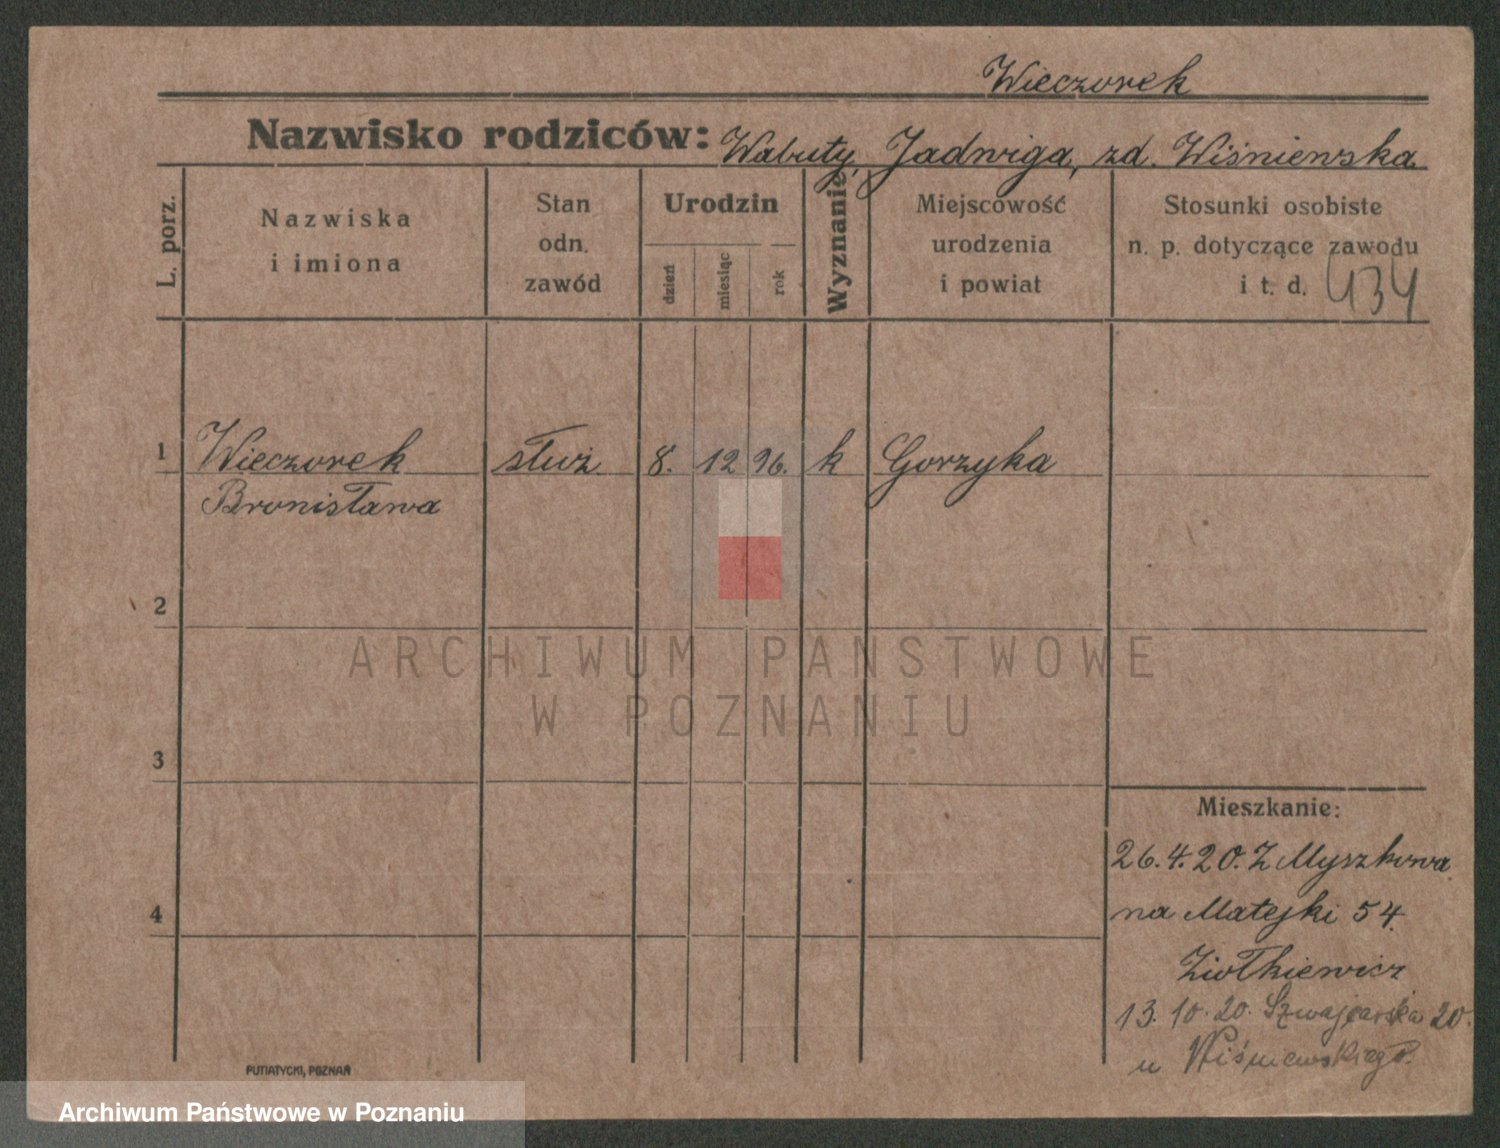 Wieczorek
Nazwisko rodziców: Wabuty, Jadwiga, zd. Wiśniewska
L. porz.
Nazwiska
i imiona
Stan
odn.
zawód
Urodzin
dzień
miesiąc
rok
Wyznanie
Miejscowość
urodzenia
i powiat
Stosunki osobiste
n. p. dotyczące zawodu
i t. d. 434
1 Wieczorek służ. 8. 12 96. k Gorzyka
Bronisława
2
ARCHIWUM PAŃSTWOWE
W POZNANIU
3
Mieszkanie:
26.4.20. Z Myszkowa
4
na Matejki 54.
Ziołkiewicz
13. 10. 20. Szwajcarska 20.
u Wiśniewskiego.
PUTIATYCKI, POZNAŃ
Archiwum Państwowe w Poznaniu